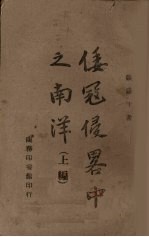 倭寇侵畧中
之南洋(上編)
商務印書館印行